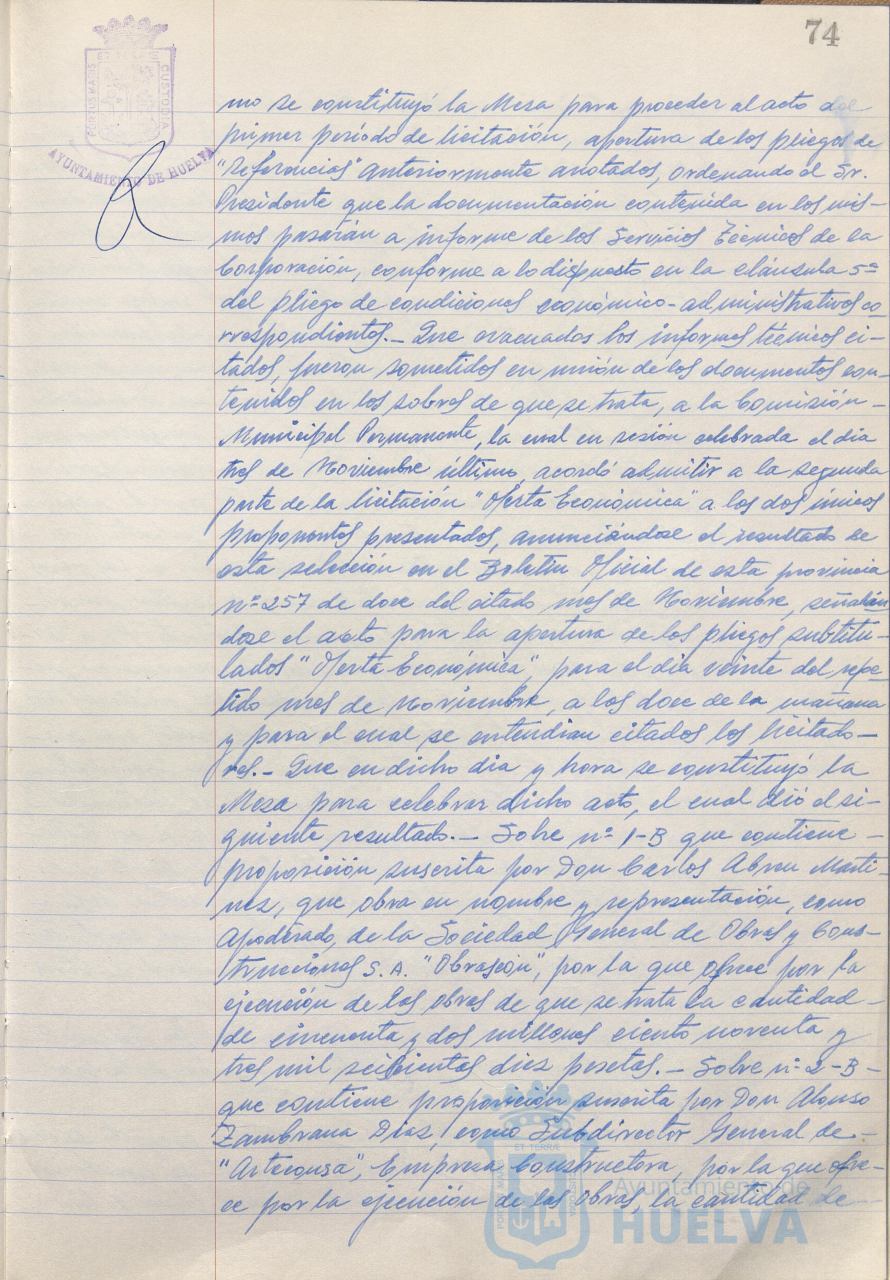 74
PORTUS MARIS
CUSTODIA
AYUNTAMIENTO DE HUELVA
mo se constituyó la Mesa para proceder al acto del
primer período de licitación, apertura de los pliegos de
"Referencias" anteriormente anotados, ordenando el Sr.
Presidente que la documentación contenida en los mis-
mos pasarán a informe de los Servicios Técnicos de la
Corporación, conforme a lo dispuesto en la cláusula 5ª
del pliego de condiciones económico-administrativas co-
rrespondientes.- Que evacuados los informes técnicos ci-
tados, fueron sometidos en unión de los documentos con-
tenidos en los sobres de que se trata, a la Comisión -
Municipal Permanente, la cual en sesión celebrada el dia
tres de Noviembre último, acordó admitir a la segunda
parte de la licitación "Oferta Económica" a los dos únicos
proponentes presentados, anunciándose el resultado de
esta selección en el Boletín Oficial de esta provincia
nº 257 de doce del citado mes de Noviembre, señalán
dose el acto para la apertura de los pliegos subtitu-
lados "Oferta Económica", para el dia veinte del repe-
tido mes de Noviembre, a las doce de la mañana
y para el cual se entendian citados los licitado-
res.- Que en dicho dia y hora se constituyó la
Mesa para celebrar dicho acto, el cual dió el si-
guiente resultado.- Sobre nº 1-B que contiene -
proposición suscrita por Don Carlos Abreu Martí-
nez, que obra en nombre y representación, como
Apoderado, de la Sociedad General de Obras y Cons-
trucciones S.A. "Obrascón", por la que ofrece por la
ejecución de las obras de que se trata la cantidad -
de cincuenta y dos millones ciento noventa y
tres mil seiscientas diez pesetas.- Sobre nº 2-B -
que contiene proposición suscrita por Don Alonso
Zambrana Diaz, como Subdirector General de -
"Arteconsa", Empresa Constructora, por la que ofre-
ce por la ejecución de las obras, la cantidad de -
Ayuntamiento de
HUELVA